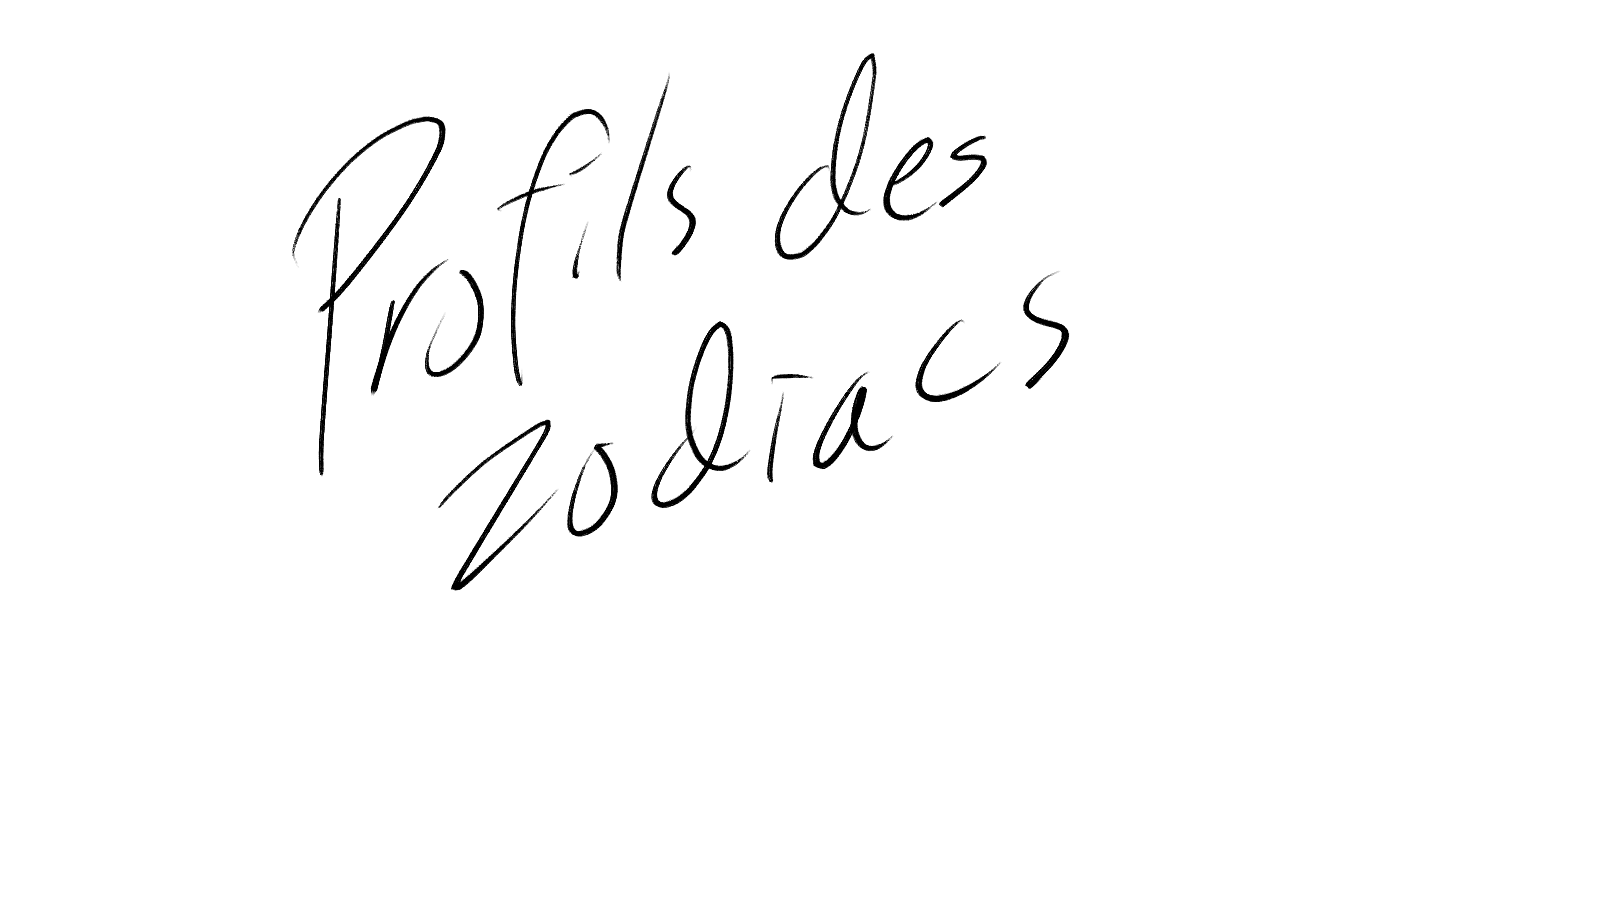 Profils des
zodiacs